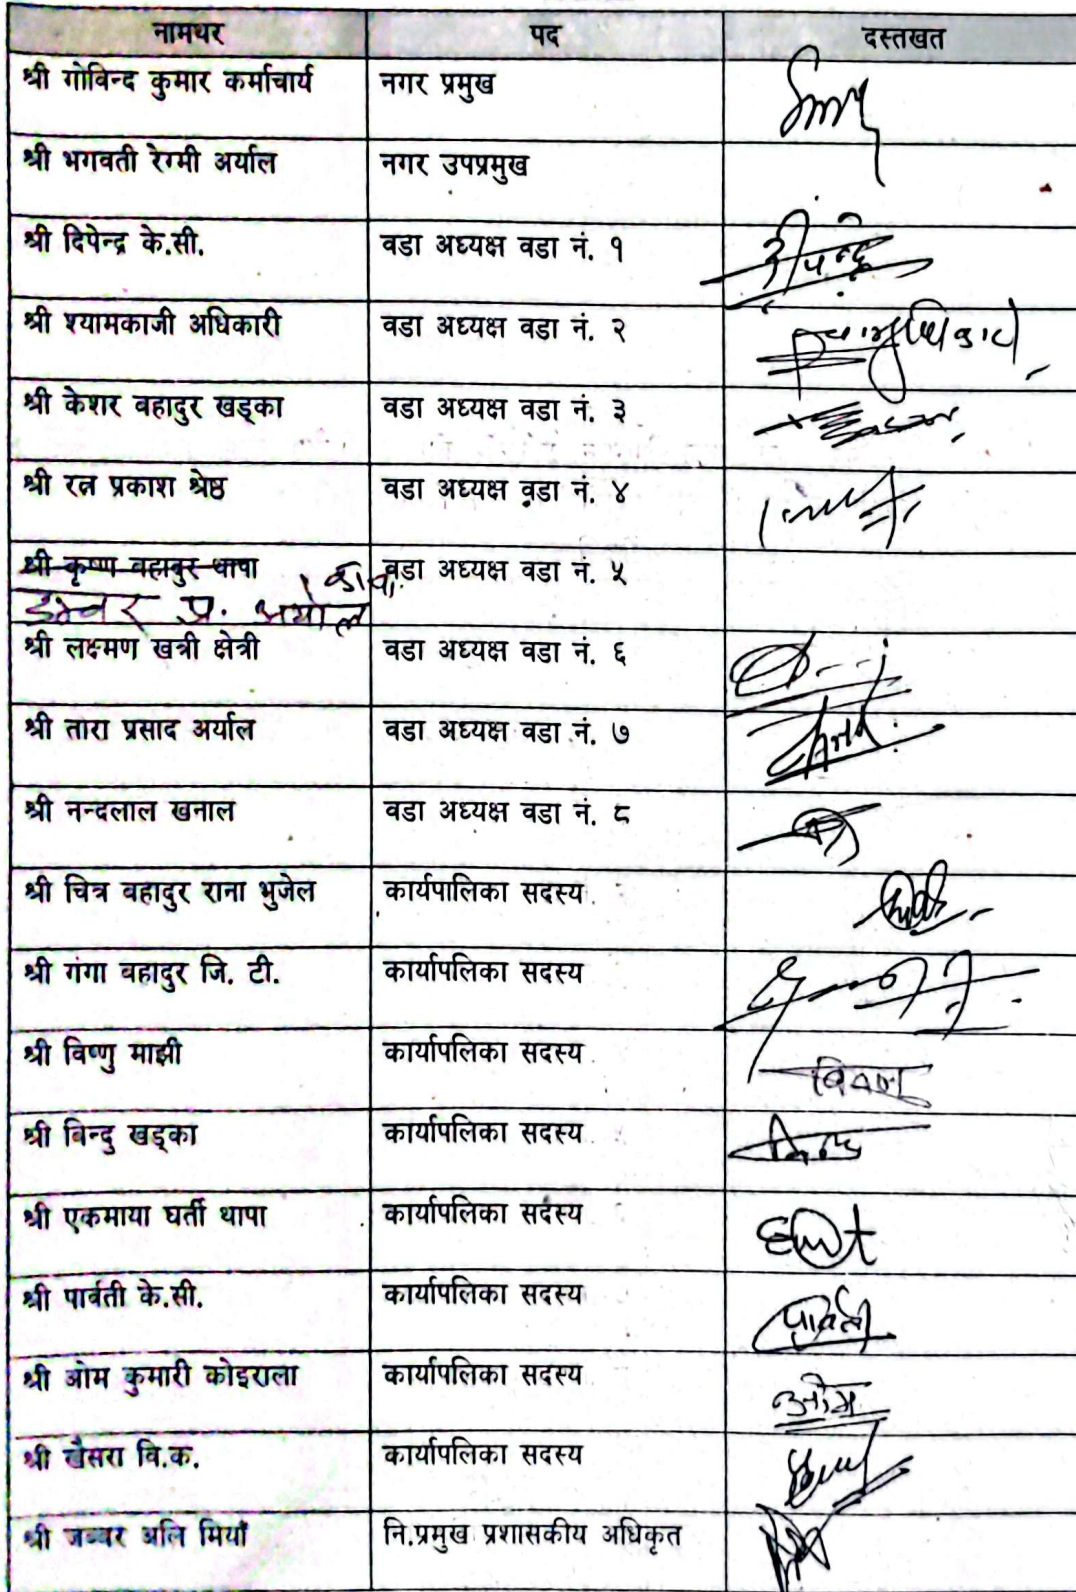 नामथर पद दस्तखत
श्री गोविन्द कुमार कर्माचार्य नगर प्रमुख
श्री भगवती रेग्मी अर्याल नगर उपप्रमुख
श्री दिपेन्द्र के.सी. वडा अध्यक्ष वडा नं. १ दीपेन्द्र
श्री श्यामकाजी अधिकारी वडा अध्यक्ष वडा नं. २
श्री केशर वहादुर खड्का वडा अध्यक्ष वडा नं. ३
श्री रत्न प्रकाश श्रेष्ठ वडा अध्यक्ष वडा नं. ४
श्री कृष्ण वहादुर थापा का.वा. वडा अध्यक्ष वडा नं. ५
डम्बर प्र. अर्याल
श्री लक्ष्मण खत्री क्षेत्री वडा अध्यक्ष वडा नं. ६
श्री तारा प्रसाद अर्याल वडा अध्यक्ष वडा नं. ७
श्री नन्दलाल खनाल वडा अध्यक्ष वडा नं. ८
श्री चित्र वहादुर राना भुजेल कार्यपालिका सदस्य
श्री गंगा वहादुर जि. टी. कार्यापलिका सदस्य
श्री विष्णु माझी कार्यापलिका सदस्य
श्री बिन्दु खड्का कार्यापलिका सदस्य बिन्दु
श्री एकमाया घर्ती थापा कार्यापलिका सदस्य
श्री पार्वती के.सी. कार्यापलिका सदस्य पार्वती
श्री ओम कुमारी कोइराला कार्यापलिका सदस्य ओम
श्री खैसरा वि.क. कार्यापलिका सदस्य
श्री जव्वर अलि मियाँ नि.प्रमुख प्रशासकीय अधिकृत